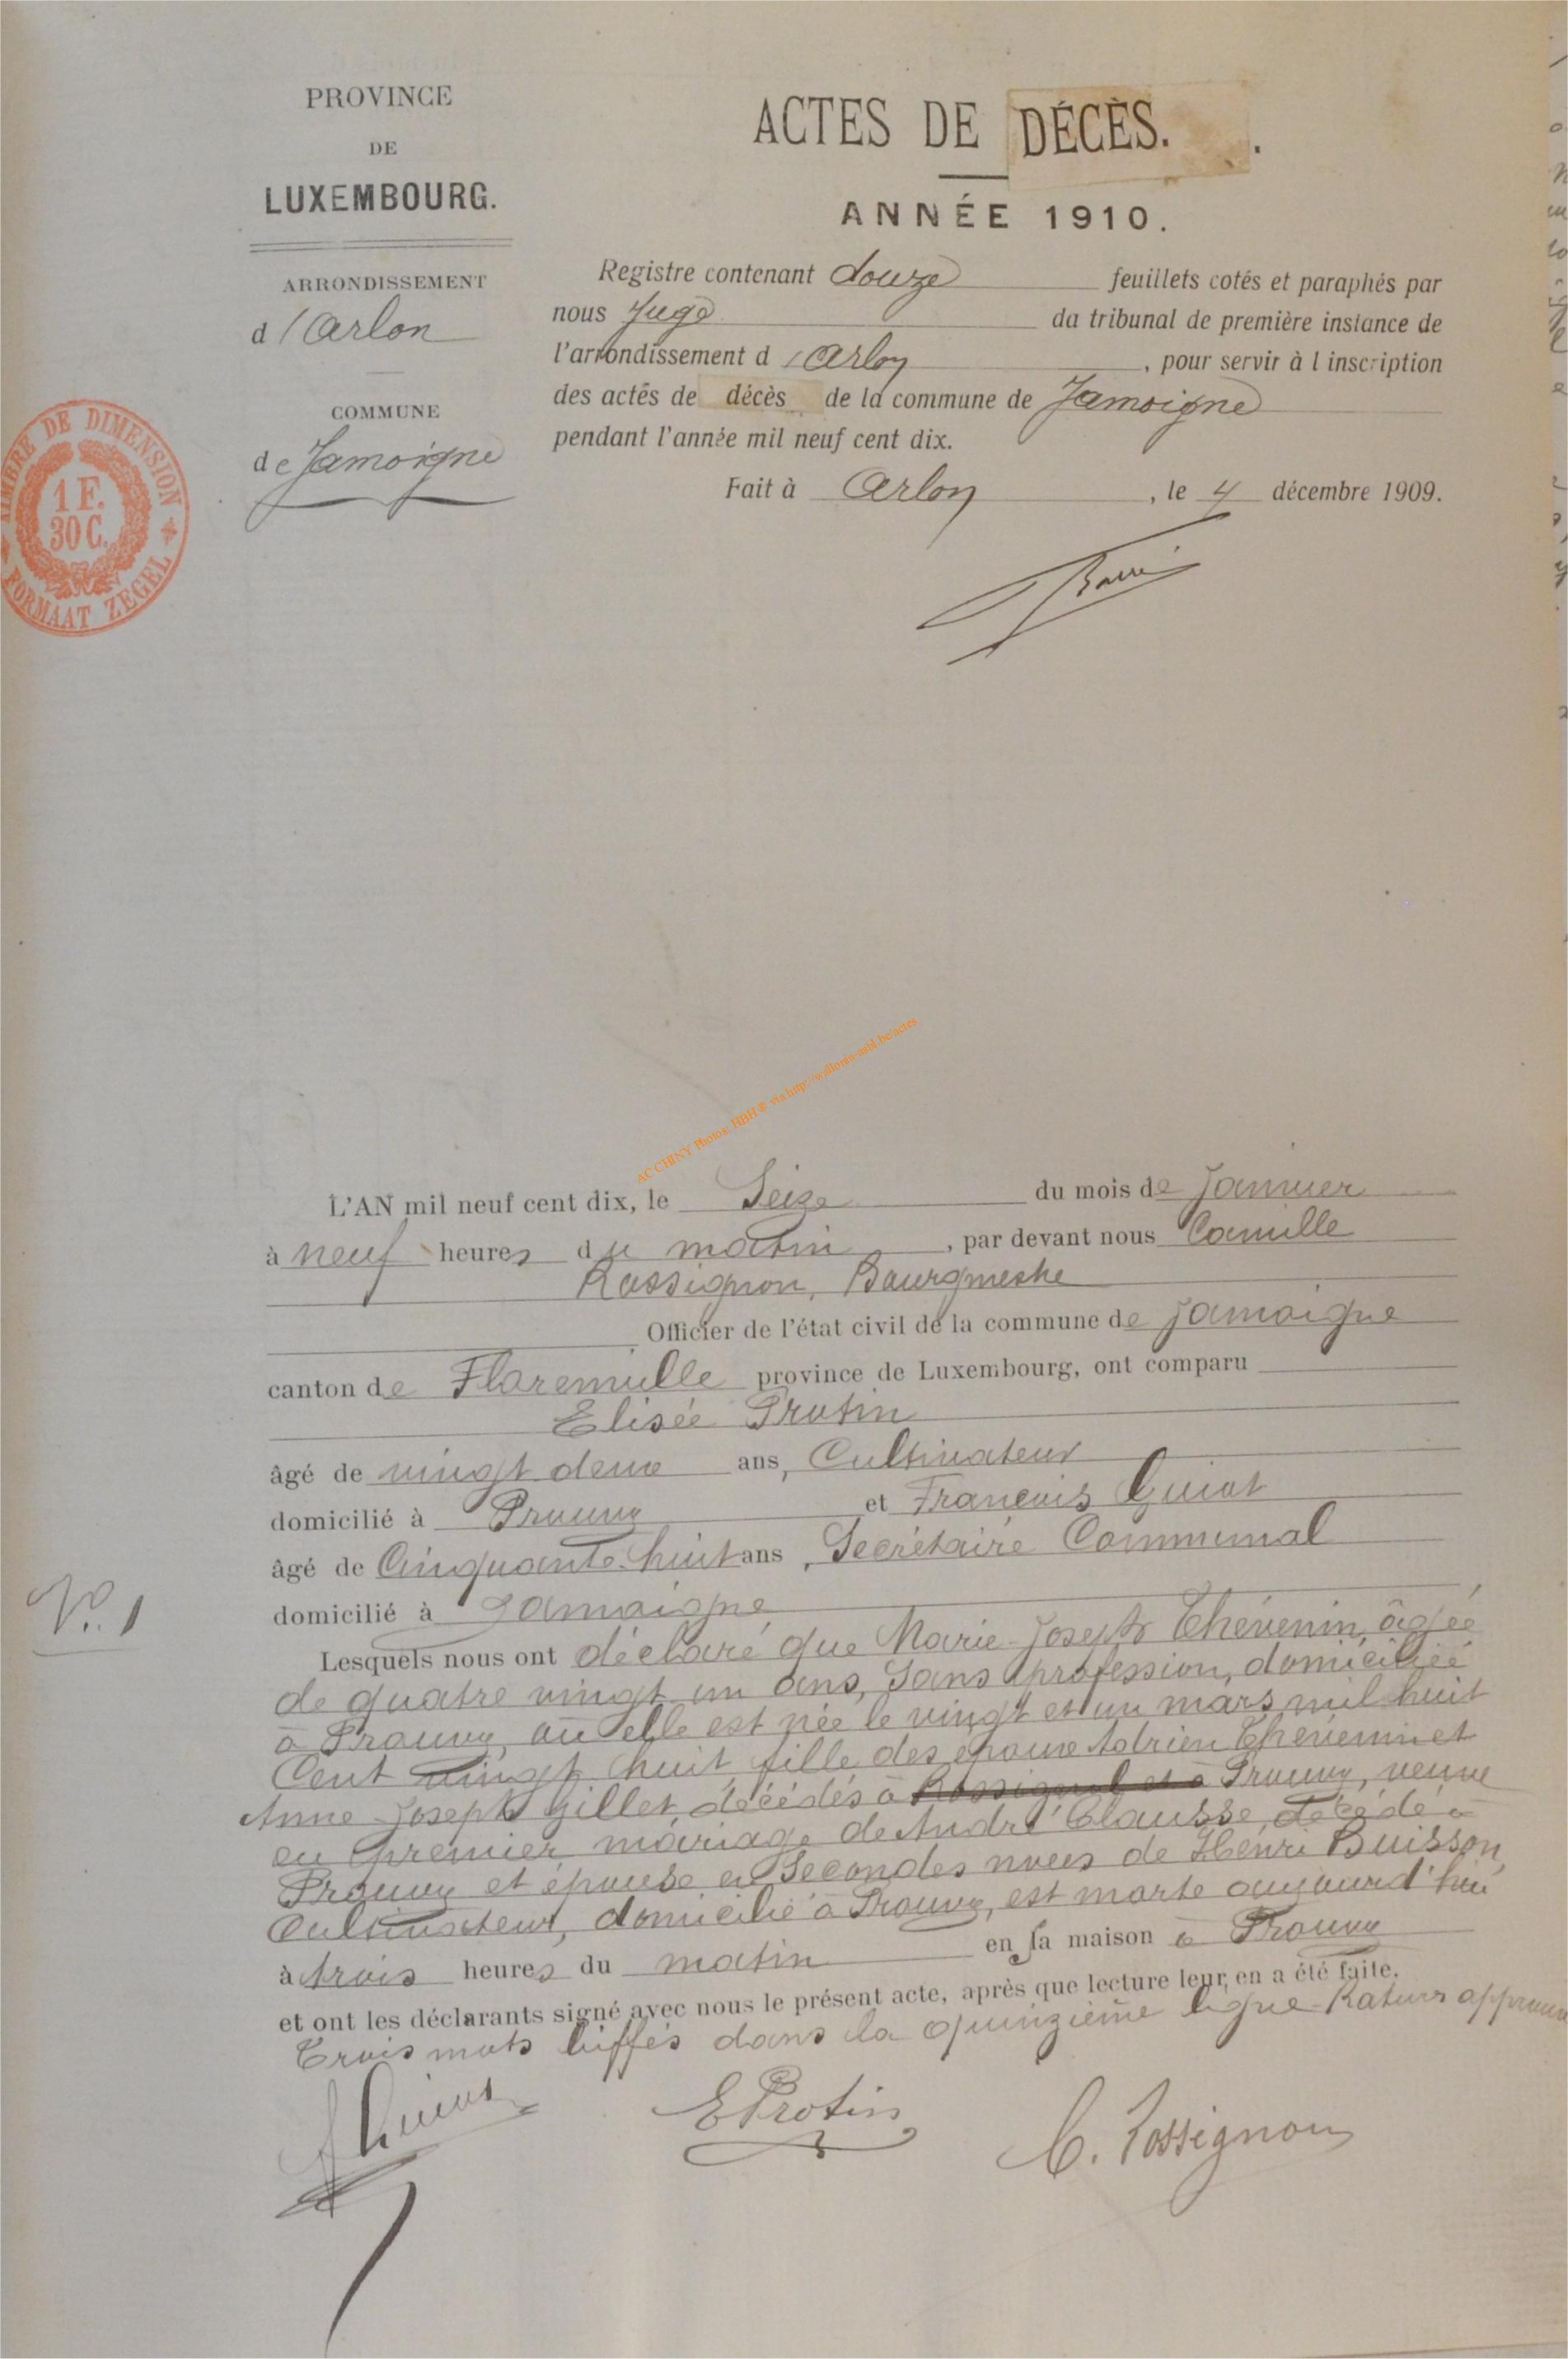 PROVINCE
DE
LUXEMBOURG.
ARRONDISSEMENT
d'Arlon
COMMUNE
de Jamoigne
TIMBRE DE DIMENSION
1 F.
30 C.
FORMAAT ZEGEL
ACTES DE DÉCÈS.
ANNÉE 1910.
Registre contenant douze feuillets cotés et paraphés par
nous Juge du tribunal de première instance de
l'arrondissement d'Arlon, pour servir à l'inscription
des actes de décès de la commune de Jamoigne
pendant l'année mil neuf cent dix.
Fait à Arlon, le 4 décembre 1909.
AC CHINY Photos: HBH © via http://wallonia-asbl.be/actes
L'AN mil neuf cent dix, le Seize du mois de Janvier
à neuf heures du matin, par devant nous Camille
Rossignon, Bourgmestre
Officier de l'état civil de la commune de Jamoigne
canton de Florenville province de Luxembourg, ont comparu
Elisée Protin
âgé de vingt deux ans, Cultivateur
domicilié à Prouvy et François Guiot
âgé de Cinquante-huit ans, Secrétaire Communal
domicilié à Jamoigne
N° 1
Lesquels nous ont déclaré que Marie-Joseph Thévenin, âgée
de quatre vingt un ans, Sans profession, domiciliée
à Prouvy, où elle est née le vingt et un mars mil huit
Cent vingt huit fille des époux Adrien Thévenin et
Anne Joseph Gillet, décédés à Rossignol et à Prouvy, veuve
en premier mariage de André Clausse, décédé à
Prouvy et épouse en Secondes noces de Henri Buisson,
Cultivateur, domicilié à Prouvy, est morte aujourd'hui
à trois heures du matin en sa maison à Prouvy
et ont les déclarants signé avec nous le présent acte, après que lecture leur en a été faite.
Trois mots biffés dans la quinzième ligne. Rature approuvée
F Guiot
E Protin
C. Rossignon